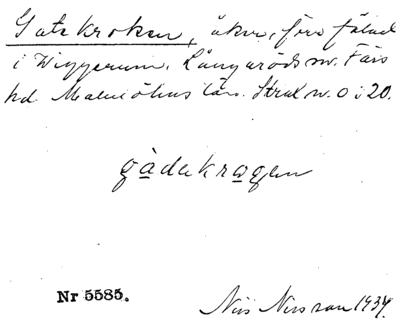 Gatekroken, åker, förr fälad
i Wiggerum, Långaröds sn. Färs
hd. Malmöhus län. Strax n. o i 20.
gàdekragen
Nr 5585.
Nils Nilsson 1934.